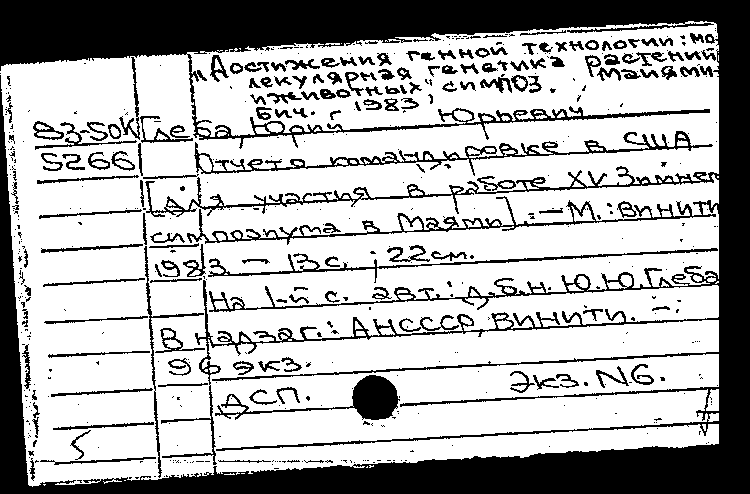 "Достижения генной технологии: мо-
лекулярная генетика растений
и животных", симпоз. Майями-
Бич. 1983
83-50К Глеба, Юрий Юрьевич
5266 Отчет о командировке в США
[для участия в работе XV Зимнего
симпозиума в Маями]. - М.: ВИНИТИ
1983. - 13 с. ; 22 см.
На 1-й с. авт.: д.б.н. Ю.Ю. Глеба
В надзаг.: АН СССР, ВИНИТИ. -:
96 экз.
ДСП. Экз. N6.
5